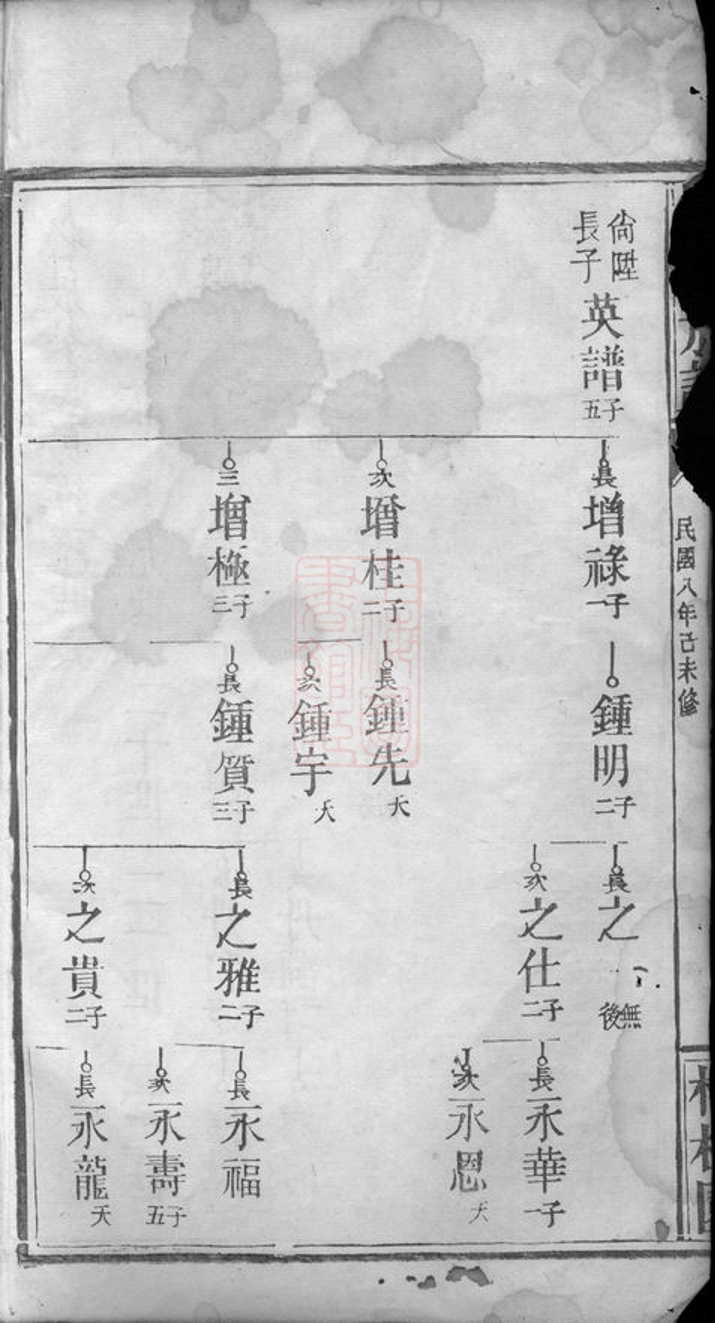 尙陞
長子
英譜 五子
長 增祿 一子
次 增桂 二子
三 增極 三子
鍾明 二子
長 鍾先 夭
次 鍾宇 夭
長 鍾質 三子
長 之
無後
次 之仕 二子
長 之雅 二子
次 之貴 二子
長 永華 一子
次 永恩 夭
長 永福
次 永壽 五子
長 永龍 夭
民國八年己未修